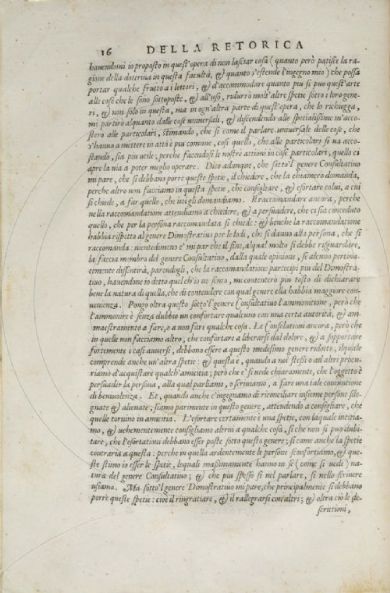 16 DELLA RETORICA
hauendomi io proposto in quest'opera di non lasciar cosa (quanto però patisce la ra-
gione della dottrina in questa facultà, & quanto s'estende l'ingegno mio) che possa
portar qualche frutto a i lettori, & d'accommodar quanto piu si può quest'arte
alle cose che le son sottoposte, & all'uso, ridurrò molt'altre spetie sotto i loro gene-
ri, & non solo in questa, ma in ogn'altra parte di quest'opera, che lo richiegga,
mi partirò alquanto dalle cose uniuersali, & discendendo alle spetialissime m'acco-
sterò alle particolari, stimando, che si come il parlare uniuersale delle cose, che
s'hanno a mettere in atto è piu comune, cosi quello, che alle particolari si ua acco-
stando, sia piu utile, perche facendosi le nostre attioni in cose particolari, quello ci
apre la uia a poter meglio operare. Dico adunque, che sotto'l genere Consultatiuo
mi pare, che si debbano porre queste spetie, il chiedere, che la chiamerò domanda,
perche altro non facciamo in questa spetie, che consigliare, & esortare colui, a cui
si chiede, a far quello, che noi gli domandiamo. Il raccomandare ancora, perche
nella raccomandatione attendiamo a chiedere, & a persuadere, che ci sia conceduto
quello, che per la persona raccomandata si chiede: & benche la raccomandatione
habbia rispetto al genere Dimostratiuo per le lodi, che si danno alla persona, che si
raccomanda: nientedimeno e' mi par che il fine, alqual molto si debbe risguardare,
la faccia membro del genere Consultatiuo, dalla quale opinione, se alcuno pertina-
cemente dissentirà, parendogli, che la raccomandatione partecipi piu del Dimostra-
tiuo, hauendone io detto quel ch'io ne sento, mi contenterò piu tosto di dichiarare
bene la natura di quella, che di contendere con qual genere ella habbia maggiore con-
uenienza. Pongo oltra questo sotto'l genere Consultatiuo l'ammonitione, però che
l'ammonire è senza dubbio un confortare qualcuno con una certa autorità, & am-
maestramento a fare, o a non fare qualche cosa. Le consolationi ancora, però che
in quelle non facciamo altro, che confortare a liberarsi dal dolore, & a sopportare
fortemente i casi auuersi, debbono essere a questo medesimo genere ridotte, ilquale
comprende anche un'altra spetie: & questa è, quando a noi stessi o ad altri procu-
riamo d'acquistare qualch'amicitia; però che e' si uede chiaramente, che l'oggetto è
persuader la persona, alla qual parliamo, o scriuiamo, a fare una tale coniuntione
di beniuolenza. Et, quando anche c'ingegnamo di riconciliare insieme persone sde-
gnate & alienate, siamo parimente in questo genere, attendendo a consigliare, che
quelle tornino in amicitia. L'esortare certamente è una spetie, con laqual incitia-
mo, & uehementemente consigliamo altrui a qualche cosa, si che non si può dubi-
tare, che l'esortationi debbano esser poste sotto questo genere; si come anche la spetie
contraria a questa: perche in quella ardentemente le persone sconfortiamo, & que-
ste stimo io esser le spetie, lequali massimamente hanno in se (come si uede) na-
tura del genere Consultatiuo; & che piu spesso si nel parlare, si nello scriuere
usiamo. Ma sotto'l genere Dimostratiuo mi pare, che principalmente si debbano
porre queste spetie: cioè il ringratiare, & il rallegrarsi con altri; & oltra ciò le de-
scrittioni,